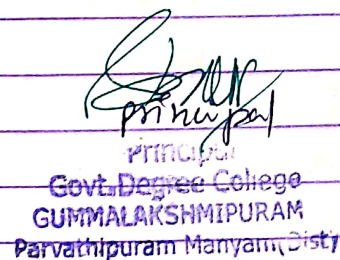 principal
Principal
Govt. Degree College
GUMMALAKSHMIPURAM
Parvathipuram Manyam(Dist)